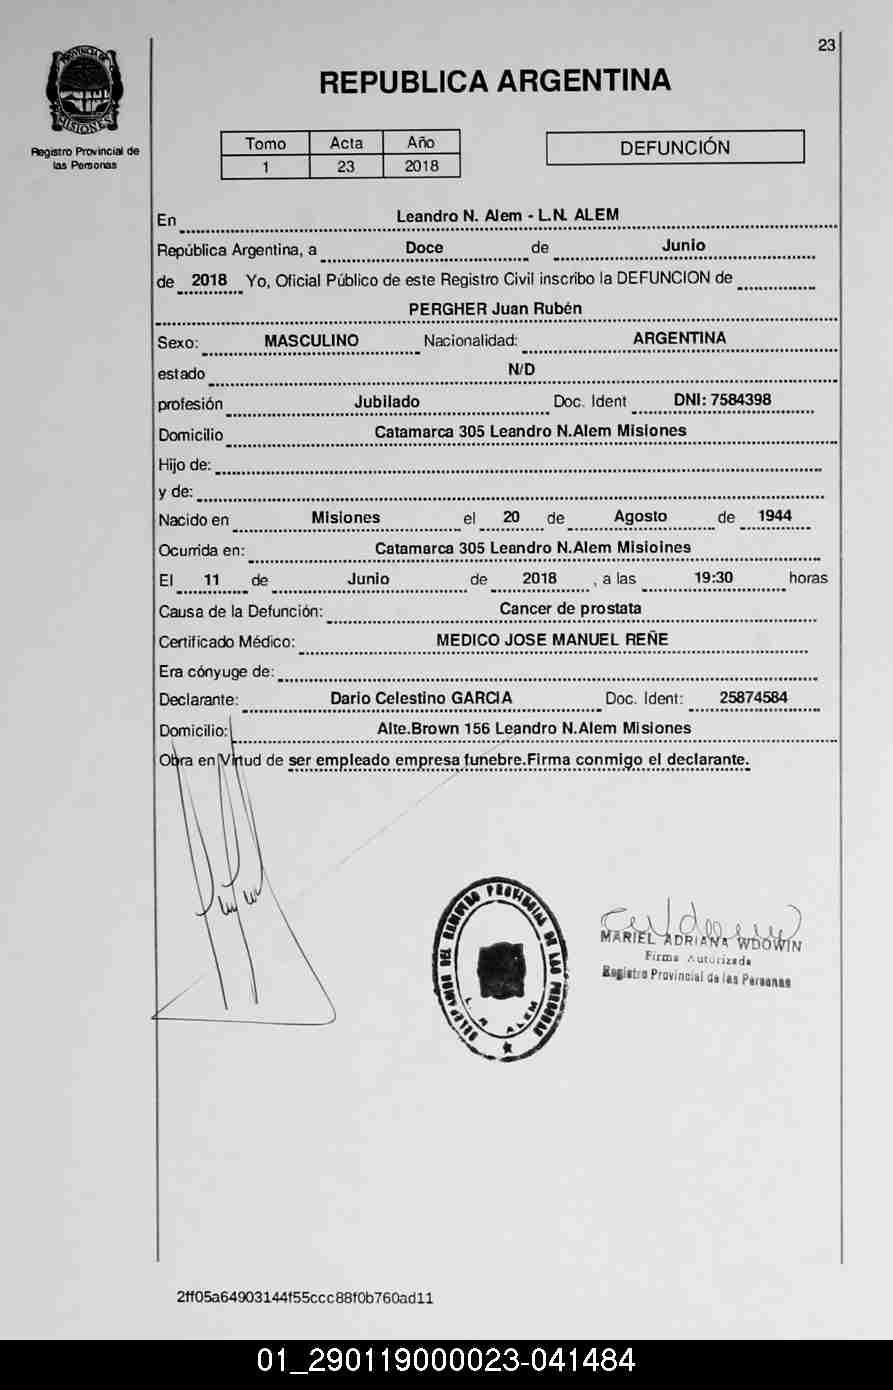 23
PROVINCIA DE
MISIONES
Registro Provincial de
las Personas
REPUBLICA ARGENTINA
Tomo Acta Año
1 23 2018
DEFUNCIÓN
En Leandro N. Alem - L.N. ALEM
República Argentina, a Doce de Junio
de 2018 Yo, Oficial Público de este Registro Civil inscribo la DEFUNCION de
PERGHER Juan Rubén
Sexo: MASCULINO Nacionalidad: ARGENTINA
estado N/D
profesión Jubilado Doc. Ident DNI: 7584398
Domicilio Catamarca 305 Leandro N.Alem Misiones
Hijo de:
y de:
Nacido en Misiones el 20 de Agosto de 1944
Ocurrida en: Catamarca 305 Leandro N.Alem Misioines
El 11 de Junio de 2018 , a las 19:30 horas
Causa de la Defunción: Cancer de prostata
Certificado Médico: MEDICO JOSE MANUEL REÑE
Era cónyuge de:
Declarante: Dario Celestino GARCIA Doc. Ident: 25874584
Domicilio: Alte.Brown 156 Leandro N.Alem Misiones
Obra en Virtud de ser empleado empresa funebre.Firma conmigo el declarante.
DELEGACION DEL REGISTRO PROVINCIAL DE LAS PERSONAS
L. N. ALEM
MARIEL ADRIANA WDOWIN
Firma Autorizada
Registro Provincial de las Personas
2ff05a64903144f55ccc88f0b760ad11
01_290119000023-041484